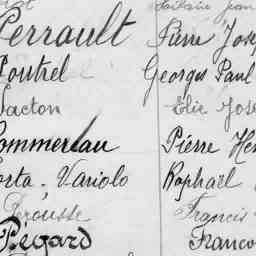 Perrault Pierre Jose
Poutrel Georges Paul
Pacton Elie Jose
Pommerlau Pierre Hen
Porta, Variolo Raphaël
Perousse Francis
Pegard Franco